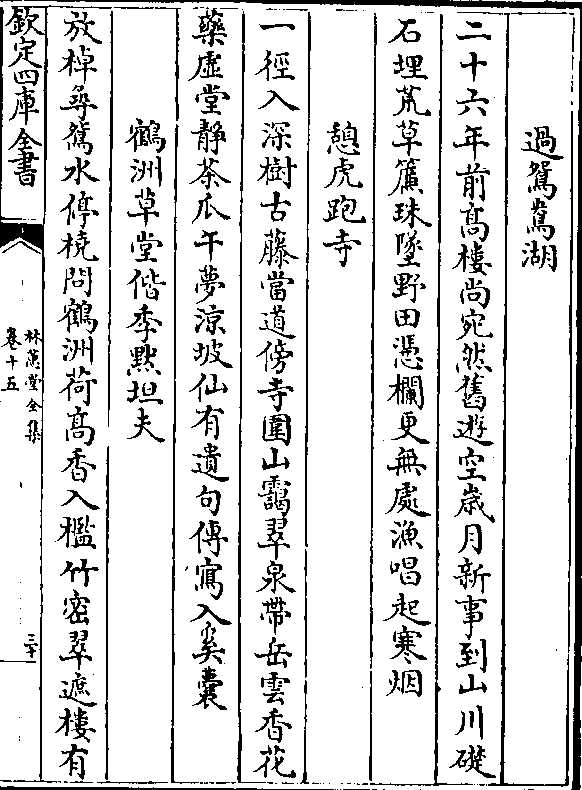 過鴛鴦湖
二十六年前髙樓尚宛然舊遊空歳月新事到山川礎
石埋荒草簾珠墜野田憑欄更無處漁唱起寒烟
憩虎跑寺
一徑入深樹古藤當道傍寺圍山靄翠泉帶岳雲香花
藥虚堂靜茶瓜午夢涼坡仙有遺句傳寫入奚囊
鶴洲草堂偕季黙坦夫
放棹尋鴛水停橈問鶴洲荷髙香入檻竹密翠遮樓有
欽定四庫全書
林蕙堂全集
卷十五
三十